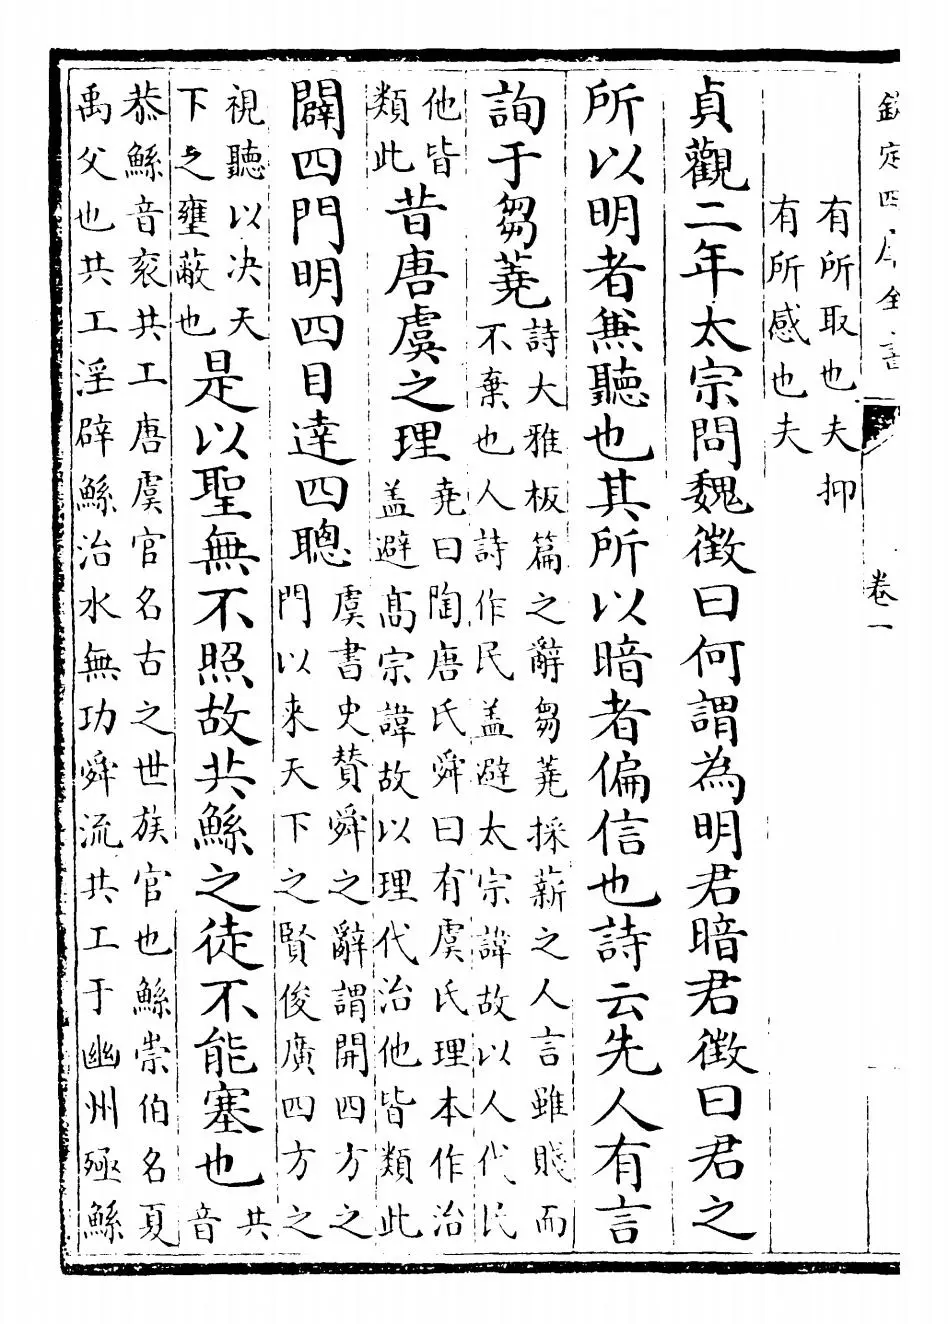 欽定四庫全書
卷一
有所取也夫抑
有所感也夫
貞觀二年太宗問魏徵曰何謂為明君暗君徵曰君之
所以明者兼聽也其所以暗者偏信也詩云先人有言
詢于芻蕘
詩大雅板篇之辭芻蕘採薪之人言雖賤而
不棄也人詩作民盖避太宗諱故以人代民
他皆
類此
昔唐虞之理
堯曰陶唐氏舜曰有虞氏理本作治
盖避高宗諱故以理代治他皆類此
闢四門明四目達四聰
虞書史賛舜之辭謂開四方之
門以来天下之賢俊廣四方之
視聽以决天
下之壅蔽也
是以聖無不照故共鯀之徒不能塞也
共
音
恭鯀音衮共工唐虞官名古之世族官也鯀崇伯名夏
禹父也共工淫辟鯀治水無功舜流共工于幽州殛鯀